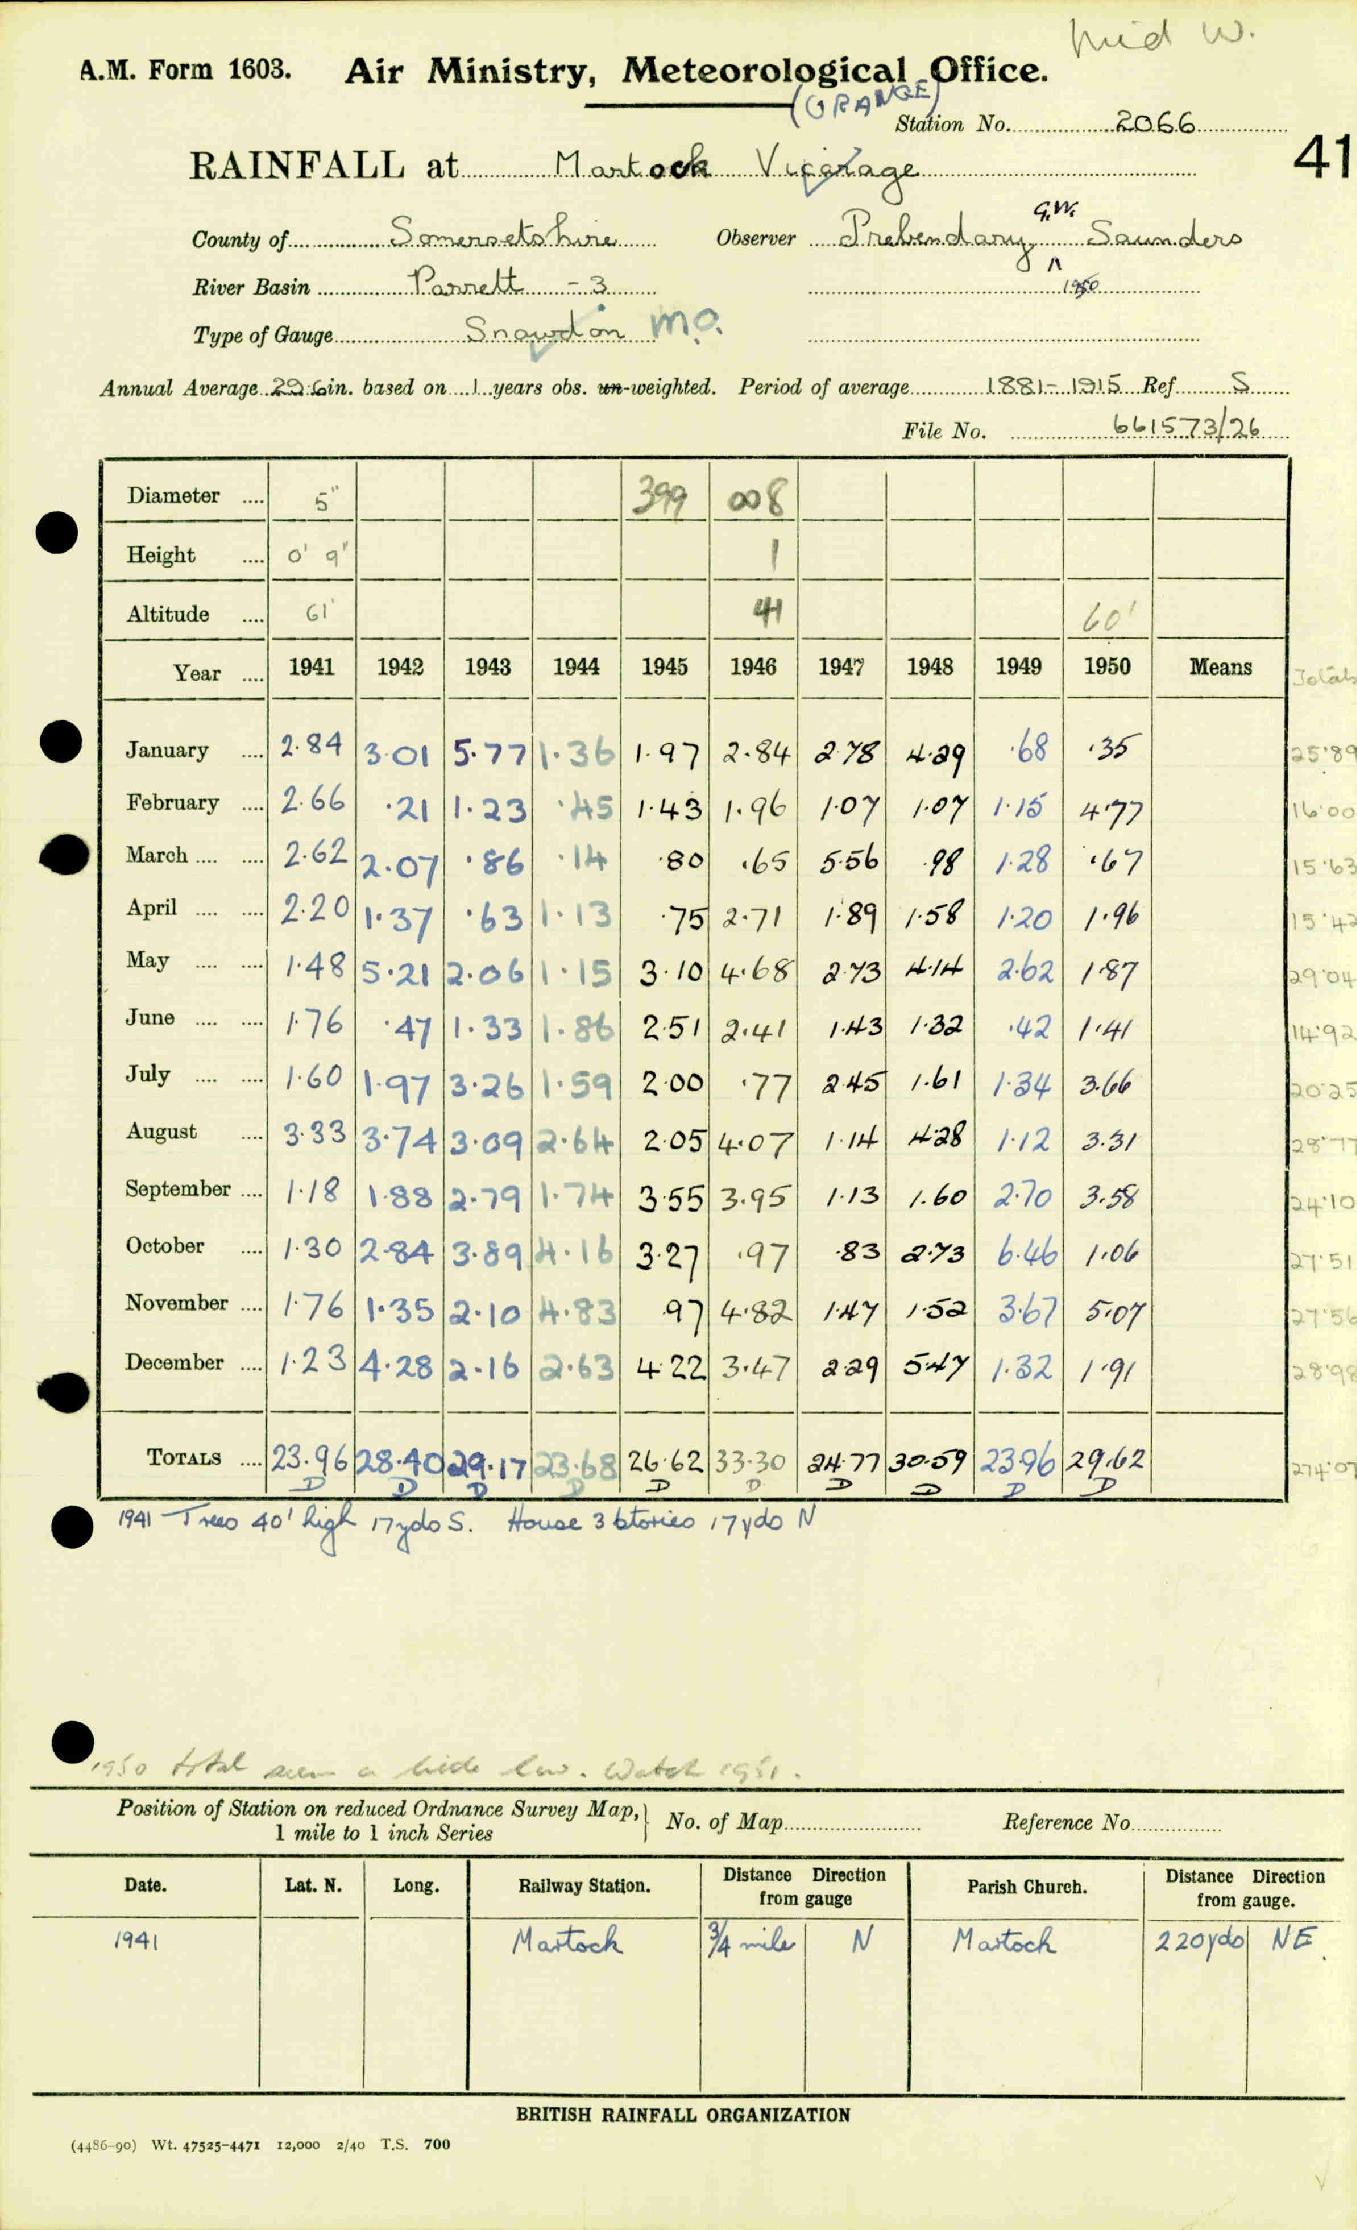 Mid W.
A.M. Form 1603. Air Ministry, Meteorological Office.
(ORANGE)
Station No. 2066
41
RAINFALL at Martock Vicarage
County of Somersetshire Observer Prebendary G.W. Saunders
River Basin Parrett - 3 1950
Type of Gauge Snowdon M.O.
Annual Average 29.6 in. based on 1 years obs. un-weighted. Period of average 1881-1915 Ref S
File No. 661573/26
Diameter .... 5" 399 008
Height .... 0' 9" 1
Altitude .... 61' 41 60'
Year .... 1941 1942 1943 1944 1945 1946 1947 1948 1949 1950 Means Totals
January .... 2.84 3.01 5.77 1.36 1.97 2.84 2.78 4.29 .68 .35 25.89
February .... 2.66 .21 1.23 .45 1.43 1.96 1.07 1.07 1.15 4.77 16.00
March .... .... 2.62 2.07 .86 .14 .80 .65 5.56 .98 1.28 .67 15.63
April .... .... 2.20 1.37 .63 1.13 .75 2.71 1.89 1.58 1.20 1.96 15.42
May .... .... 1.48 5.21 2.06 1.15 3.10 4.68 2.73 4.14 2.62 1.87 29.04
June .... .... 1.76 .47 1.33 1.86 2.51 2.41 1.43 1.32 .42 1.41 14.92
July .... .... 1.60 1.97 3.26 1.59 2.00 .77 2.45 1.61 1.34 3.66 20.25
August .... 3.33 3.74 3.09 2.64 2.05 4.07 1.14 4.28 1.12 3.31 28.77
September .... 1.18 1.88 2.79 1.74 3.55 3.95 1.13 1.60 2.70 3.58 24.10
October .... 1.30 2.84 3.89 4.16 3.27 .97 .83 2.73 6.46 1.06 27.51
November .... 1.76 1.35 2.10 4.83 .97 4.82 1.47 1.52 3.67 5.07 27.56
December .... 1.23 4.28 2.16 2.63 4.22 3.47 2.29 5.47 1.32 1.91 28.98
TOTALS .... 23.96 28.40 29.17 23.68 26.62 33.30 24.77 30.59 23.96 29.62 274.07
D D D D D D D D D D
1941 Trees 40' high 17yds S. House 3 stories 17yds N
1950 total seem a little low. Watch 1951.
Position of Station on reduced Ordnance Survey Map, 1 mile to 1 inch Series No. of Map Reference No.
Date. Lat. N. Long. Railway Station. Distance from gauge Direction Parish Church. Distance from gauge. Direction
1941 Martock 3/4 mile N Martock 220yds NE.
BRITISH RAINFALL ORGANIZATION
(4486-90) Wt. 47525-4471 12,000 2/40 T.S. 700